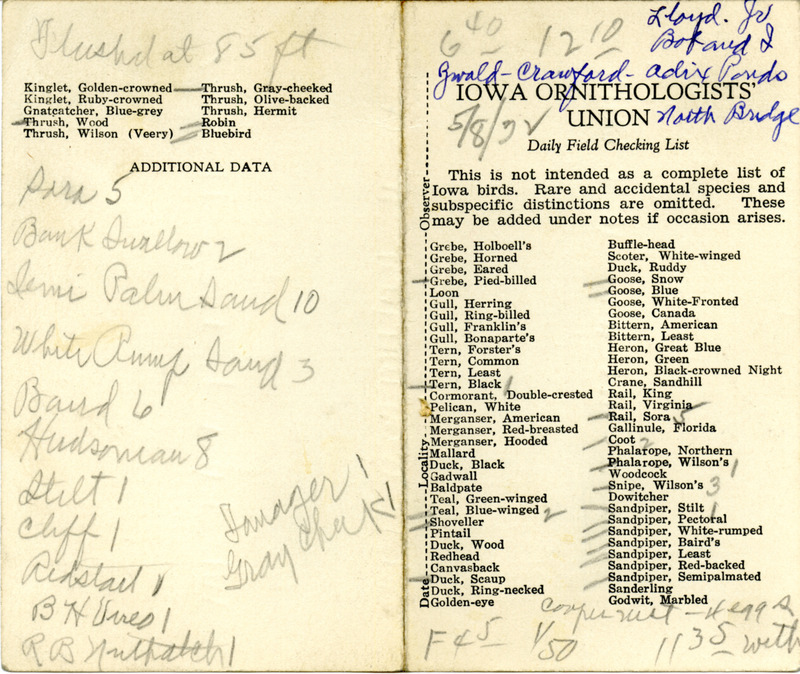 Flushd at 85 ft
Kinglet, Golden-crowned
Kinglet, Ruby-crowned
Gnatcatcher, Blue-grey
Thrush, Wood
Thrush, Wilson (Veery)
Thrush, Gray-cheeked
Thrush, Olive-backed
Thrush, Hermit
Robin
Bluebird
ADDITIONAL DATA
Sora 5
Bank Swallow 2
Semi Palm Sand 10
White Rump Sand 3
Baird 6
Hudsonian 8
Stilt 1
Cliff 1
Redstart 1
B H Vireo 1
R B Nuthatch 1
Tanager 1
Gray Cheek 1
6 40 12 10
Lloyd. Jr
Bob and I
Gwald - Crawford - Adix Ponds
North Bridge
5/8/32
IOWA ORNITHOLOGISTS'
UNION
Daily Field Checking List
This is not intended as a complete list of
Iowa birds. Rare and accidental species and
subspecific distinctions are omitted. These
may be added under notes if occasion arises.
Observer
Locality
Date
Grebe, Holboell's
Grebe, Horned
Grebe, Eared
Grebe, Pied-billed
Loon
Gull, Herring
Gull, Ring-billed
Gull, Franklin's
Gull, Bonaparte's
Tern, Forster's
Tern, Common
Tern, Least
Tern, Black
Cormorant, Double-crested 1
Pelican, White
Merganser, American
Merganser, Red-breasted
Merganser, Hooded
Mallard
Duck, Black
Gadwall
Baldpate
Teal, Green-winged
Teal, Blue-winged 2
Shoveller
Pintail
Duck, Wood
Redhead
Canvasback
Duck, Scaup
Duck, Ring-necked
Golden-eye
Buffle-head
Scoter, White-winged
Duck, Ruddy
Goose, Snow
Goose, Blue
Goose, White-Fronted
Goose, Canada
Bittern, American
Bittern, Least
Heron, Great Blue
Heron, Green
Heron, Black-crowned Night
Crane, Sandhill
Rail, King
Rail, Virginia
Rail, Sora 5
Gallinule, Florida
Coot 2
Phalarope, Northern
Phalarope, Wilson's 1
Woodcock
Snipe, Wilson's 3
Dowitcher
Sandpiper, Stilt
Sandpiper, Pectoral 1
Sandpiper, White-rumped
Sandpiper, Baird's
Sandpiper, Least
Sandpiper, Red-backed
Sandpiper, Semipalmated
Sanderling
Godwit, Marbled
Cooper nest - 4 eggs
F 45 1/50 11 35 with